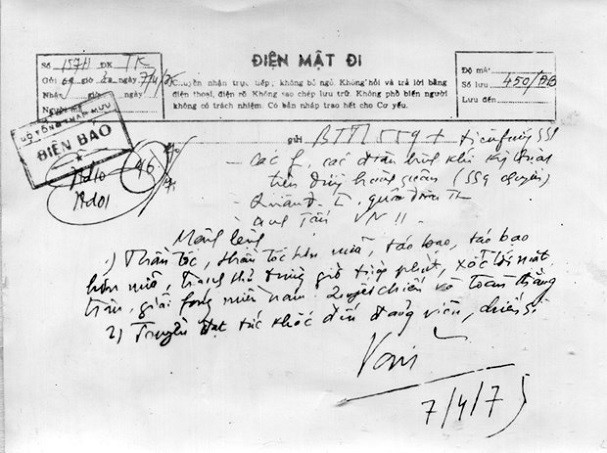 ĐIỆN MẬT ĐI
Số 157H ĐK TK
Gửi giờ ngày 7/4/75
Nhận giờ ngày
Người
Chuyển nhận trực tiếp; không bỏ ngỏ. Không hỏi và trả lời bằng
điện thoại, điện rõ. Không sao chép lưu trữ. Không phổ biến người
không có trách nhiệm. Có bản nhập trao hết cho Cơ yếu.
Độ mật
Số lưu 450/ĐB
Lưu đến
BỘ TỔNG THAM MƯU
ĐIỆN BÁO
gửi BTTM 559 + tiền phương 559
- Các f, các binh khí kỹ thuật
tiến đường hành quân (559 chuyển)
- Quân đ. I, quân đoàn
Mệnh lệnh
1) Thần tốc, thần tốc hơn nữa, táo bạo, táo bạo
hơn nữa, tranh thủ từng giờ từng phút, xốc tới mặt
trận, giải fóng miền nam. Quyết chiến và toàn thắng
2) Truyền đạt tức khắc đến đảng viên, chiến sĩ
Văn
7/4/75